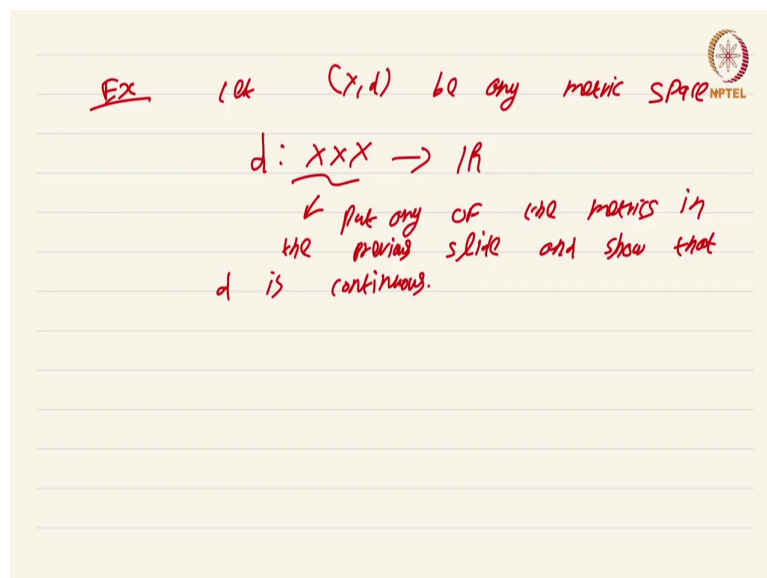 Ex let (X,d) be any metric space
NPTEL
d : X×X → IR
↙ put any of the metrics in
the previous slide and show that
d is continuous.